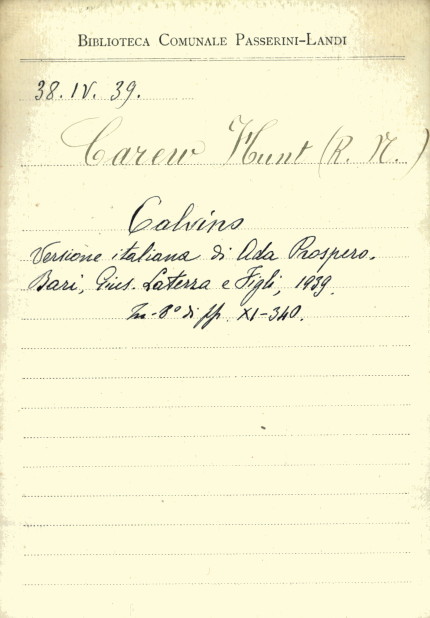 BIBLIOTECA COMUNALE PASSERINI-LANDI
38. IV. 39.
Carew Hunt (R. N.)
Calvino
Versione italiana di Ada Prospero.
Bari, Gius. Laterza e Figli, 1939.
In-8° di pp. XI-340.